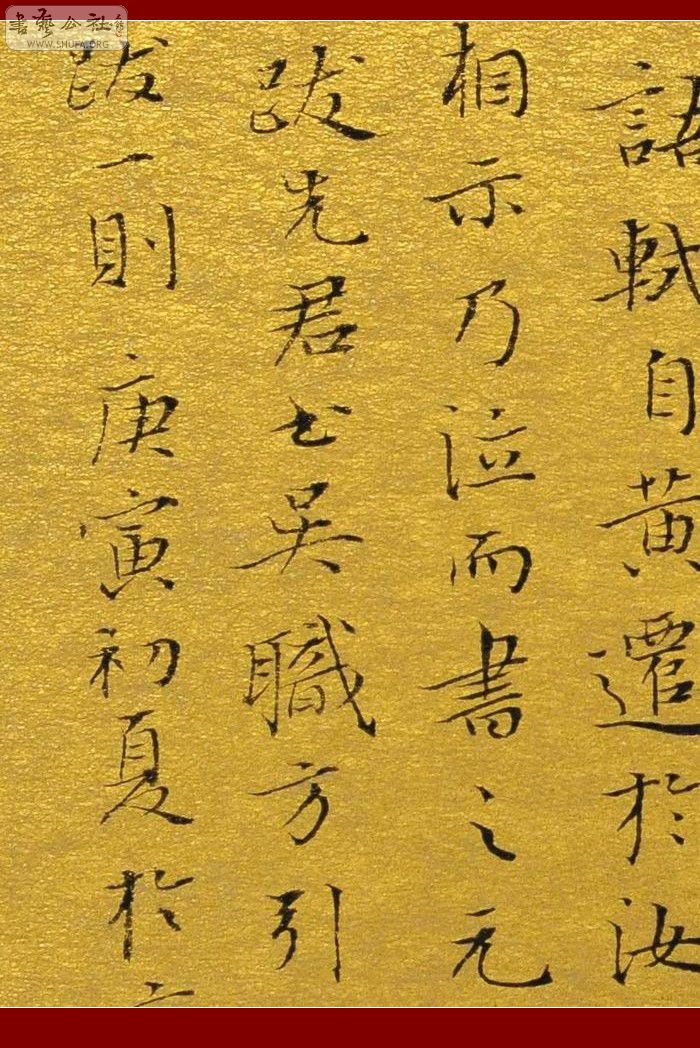 諾軾自黃遷於汝
相示乃泣而書之元
跋先君書吳職方引
跋一則庚寅初夏於
書藝公社
WWW.SHUFA.ORG